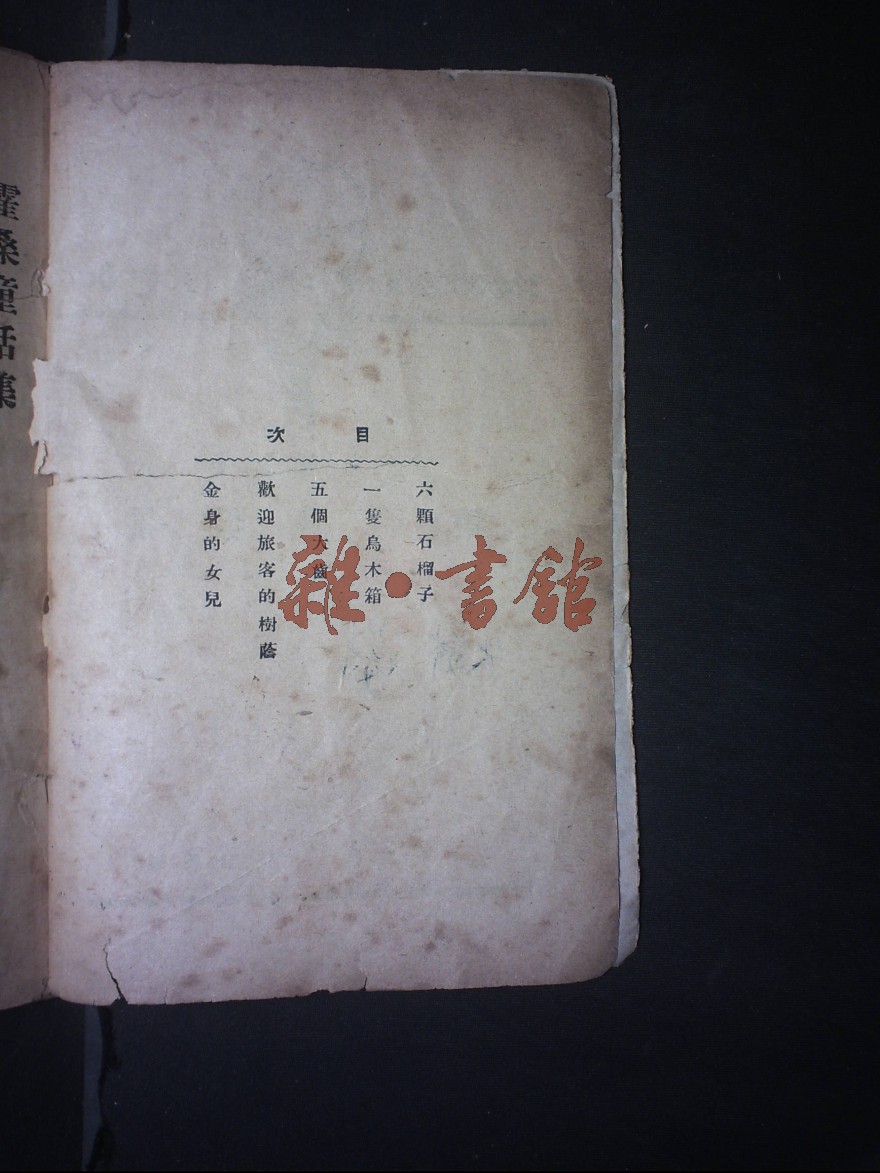 霍桑童話集
目次
六顆石榴子
一隻烏木箱
五個大齒
歡迎旅客的樹蔭
金身的女兒
雜·書館